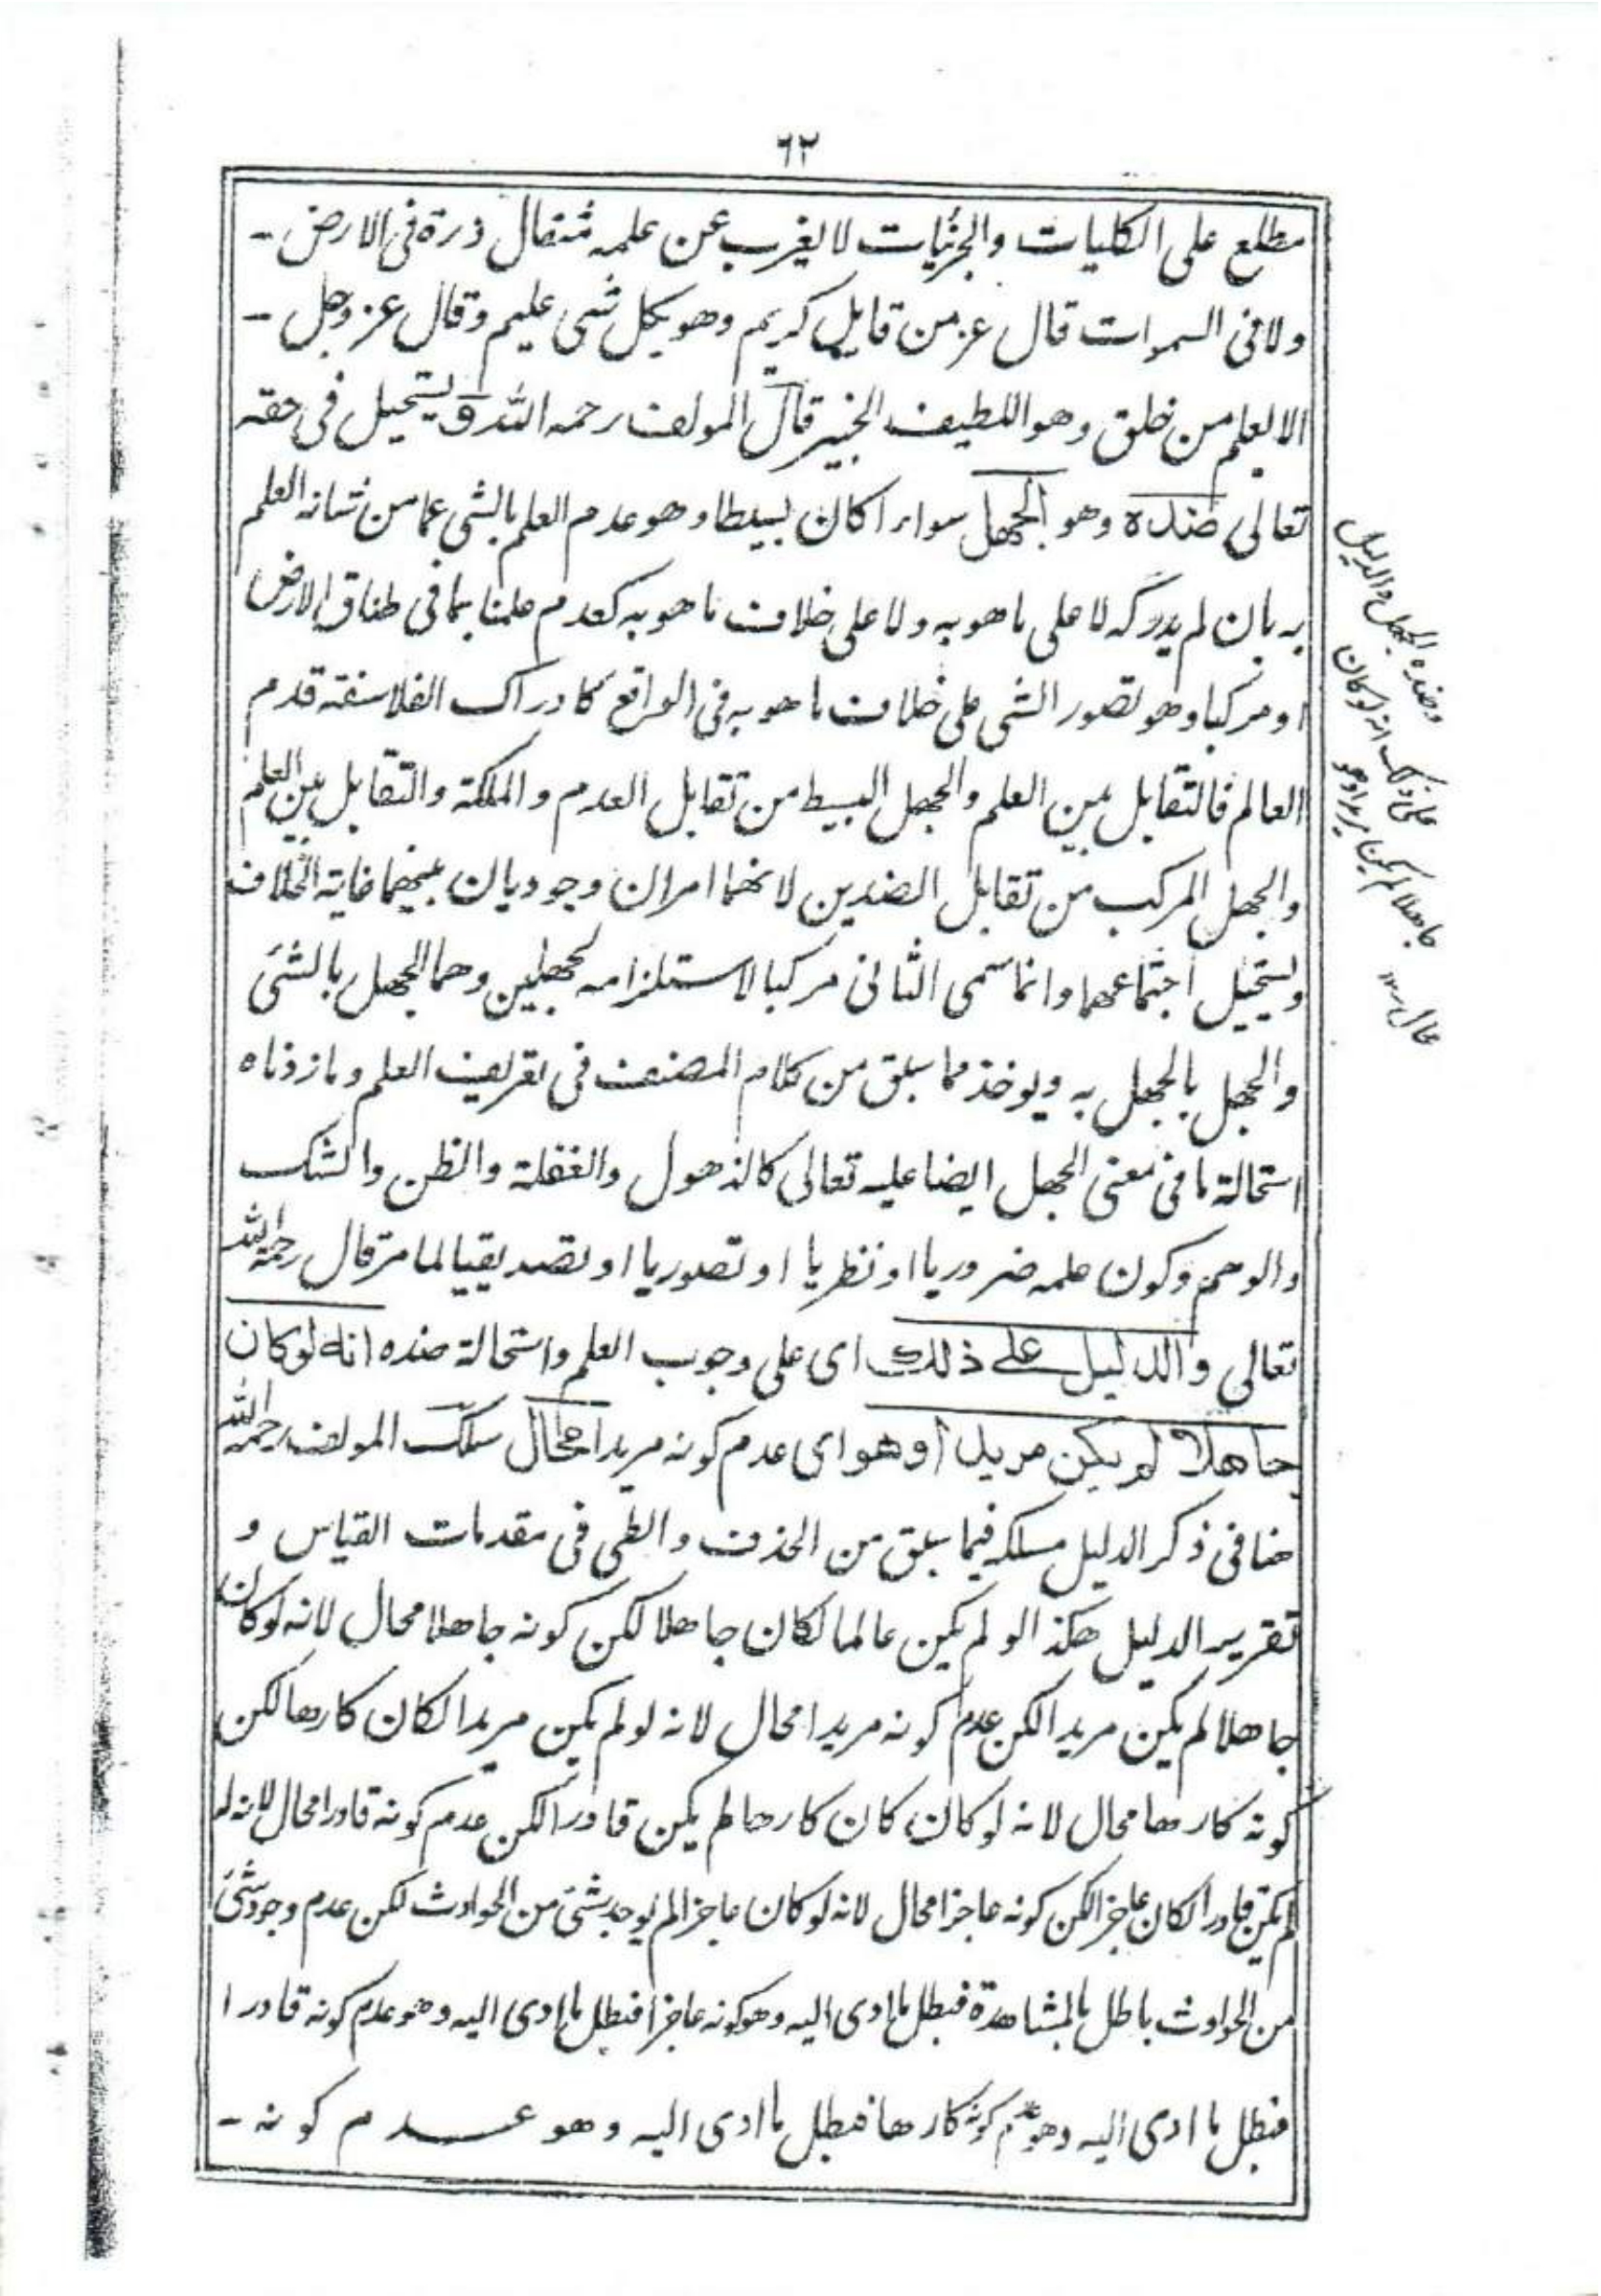 ٦٢
مطلع على الكليات والجزئيات لا يغرب عن علمه مثقال ذرة فى الارض -
ولا فى السموات قال عز من قايل كريم وهو بكل شى عليم وقال عز وجل -
الا يعلم من خلق وهو اللطيف الخبير قال المولف رحمه الله ويستحيل فى حقه
تعالى ضده وهو الجهل سواء اكان بسيطا وهو عدم العلم بالشى عما من شانه العلم
به بان لم يدركه لا على ما هو به ولا على خلاف ما هو به كعدم علمنا بما فى طباق الارض
او مركبا وهو تصور الشى على خلاف ما هو به فى الواقع كادراك الفلاسفة قدم
العالم فالتقابل بين العلم والجهل البسيط من تقابل العدم والملكة والتقابل بين العلم
والجهل المركب من تقابل الضدين لانهما امران وجوديان بينهما غاية الخلاف
ويستحيل اجتماعهما وانما سمى الثانى مركبا لاستلزامه لجهلين وهما الجهل بالشئ
والجهل بالجهل به ويوخذ مما سبق من كلام المصنف فى تعريف العلم وما زدناه
استحالة ما فى معنى الجهل ايضا عليه تعالى كالذهول والغفلة والظن والشك
والوهم وكون علمه ضروريا او نظريا او تصوريا او تصديقيا لما مر قال رحمه الله
تعالى والدليل على ذلك اى على وجوب العلم واستحالة ضده انه لوكان
جاهلا لم يكن مريدا وهو اى عدم كونه مريدا محال سلك المولف رحمه الله
هنا فى ذكر الدليل مسلكه فيما سبق من الحذف والطى فى مقدمات القياس و
تقرير الدليل هكذا لو لم يكن عالما لكان جاهلا لكن كونه جاهلا محال لانه لوكان
جاهلا لم يكن مريدا لكن عدم كونه مريدا محال لانه لو لم يكن مريدا لكان كارها لكن
كونه كارها محال لانه لو كان كان كارها لم يكن قادرا لكن عدم كونه قادرا محال لانه لو
لم يكن قادرا لكان عاجزا لكن كونه عاجزا محال لانه لوكان عاجزا لم يوجد شئ من الحوادث لكن عدم وجود شئ
من الحوادث باطل بالمشاهدة فبطل ما ادى اليه وهو كونه عاجزا فبطل ما ادى اليه وهو عدم كونه قادرا
فبطل ما ادى اليه وهو عدم كونه كارها فبطل ما ادى اليه وهو عدم كونه -
وضده الجهل والدليل
على ذلك انه لوكان
جاهلا لم يكن مريدا وهو
محال ١٢